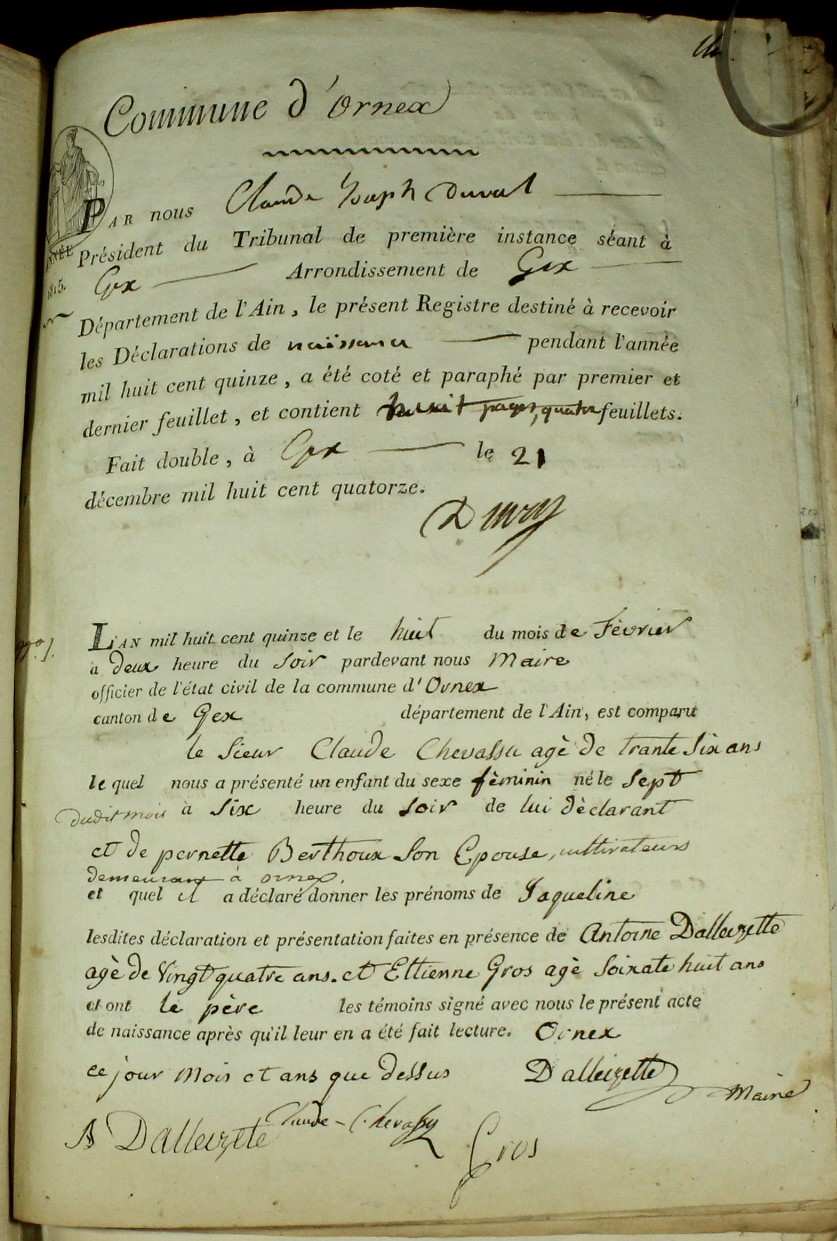 Commune d'Ornex
Par nous Claude Joseph Duval
Président du Tribunal de première instance séant à
Gex Arrondissement de Gex
Département de l'Ain, le présent Registre destiné à recevoir
les Déclarations de naissance pendant l'année
mil huit cent quinze, a été coté et paraphé par premier et
dernier feuillet, et contient quatre feuillets.
Fait double, à Gex le 21
décembre mil huit cent quatorze.
1815.
N° 1.
L'an mil huit cent quinze et le huit du mois de Fèvrier
a deux heure du Soir pardevant nous Maire
officier de l'état civil de la commune d'Ornex
canton de Gex département de l'Ain, est comparu
le Sieur Claude Chevassu agè de trante Six ans
le quel nous a présenté un enfant du sexe fèminin né le Sept
dudit mois à Six heure du Soir de lui dèclarant
et de pernette Berthoux Son Epouse, cultivateurs
demeurant à ornex.
et quel il a déclaré donner les prénoms de Jaqueline
lesdites déclaration et présentation faites en présence de Antoine Dalleizette
agè de Vingt quatre ans. et Ettienne Gros agè Soixate huit ans
et ont le père les témoins signé avec nous le présent acte
de naissance après qu'il leur en a été fait lecture. Ornex
ce jour Mois et ans que dessus Dalleizette Maire
A Dalleizette Claude Chevassu Gros